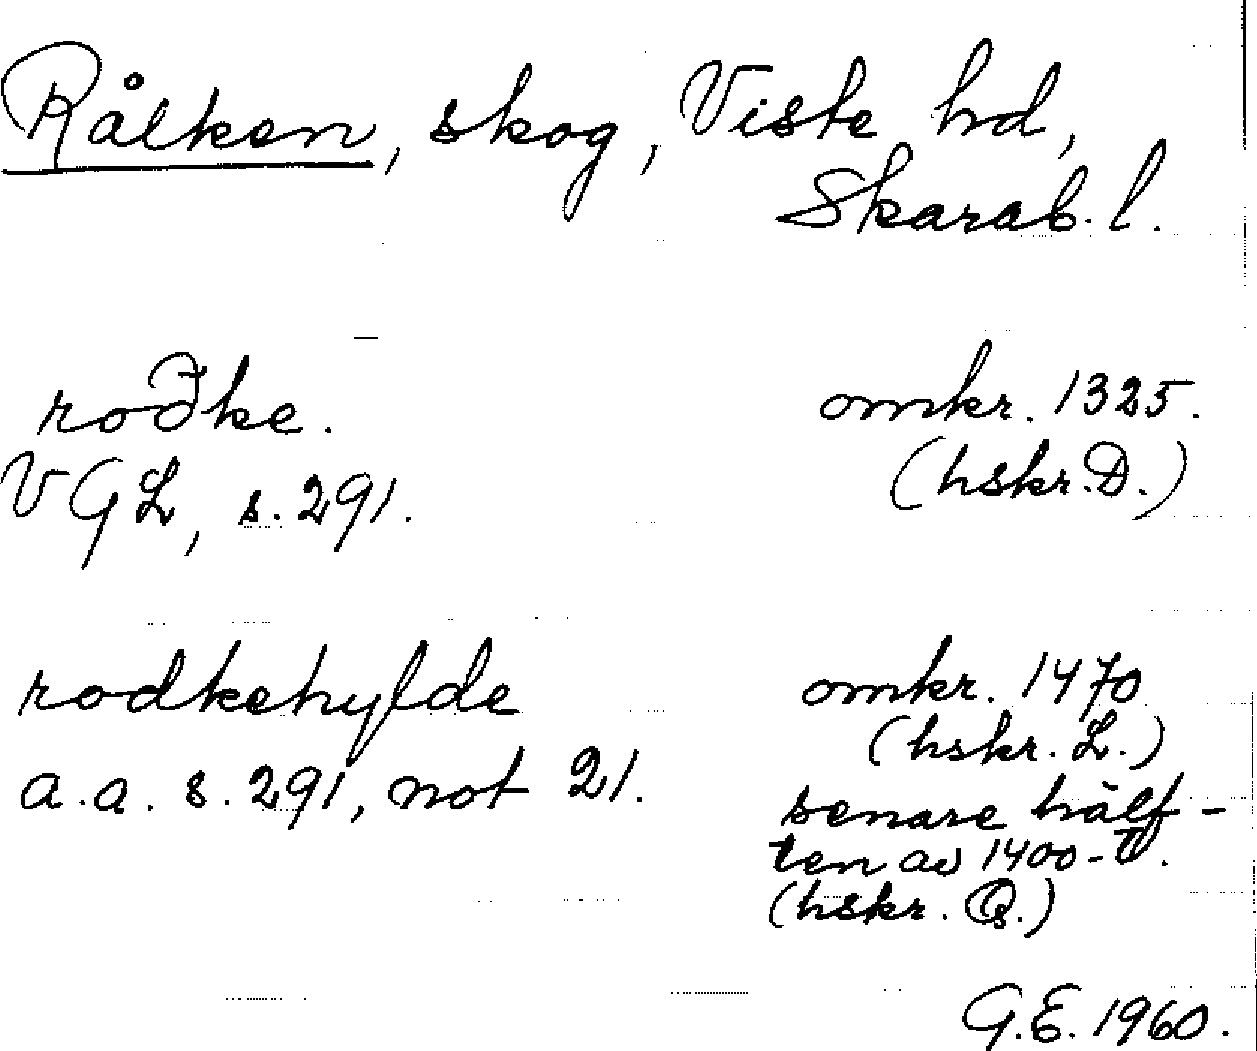 Rålken, skog, Viste hd,
Skarab. l.
roðke. omkr. 1325.
VGL, s. 291. (hskr. D.)
rodkehylde omkr. 1470
(hskr. L.)
a.a. s. 291, not 21.
senare hälf-
ten av 1400-t.
(hskr. Q.)
G.E. 1960.